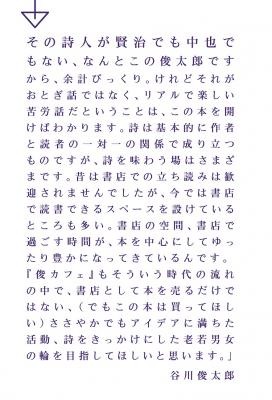 その詩人が賢治でも中也で
もない、なんとこの俊太郎です
から、余計びっくり。けれどそれが
おとぎ話ではなく、リアルで楽しい
苦労話だということは、この本を開
けばわかります。詩は基本的に作者
と読者の一対一の関係で成り立つ
ものですが、詩を味わう場はさまざ
まです。昔は書店での立ち読みは歓
迎されませんでしたが、今では書店
で読書できるスペースを設けている
ところも多い。書店の空間、書店で
過ごす時間が、本を中心にしてゆっ
たり豊かになってきているんです。
『俊カフェ』もそういう時代の流れ
の中で、書店として本を売るだけで
はない、（でもこの本は買ってほし
い）ささやかでもアイデアに満ちた
活動、詩をきっかけにした老若男女
の輪を目指してほしいと思います。」
谷川俊太郎